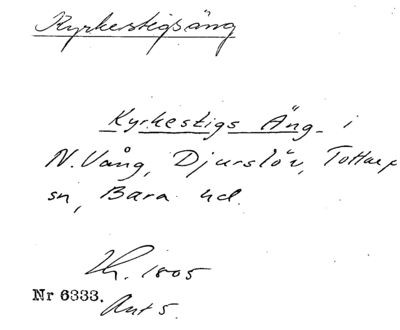 Kyrkestigsäng
Kyrkestigs Äng i
N. Vång, Djurslöv, Tottarp
sn, Bara hd.
Lh. 1805
Nr 6333.
Akt 5.